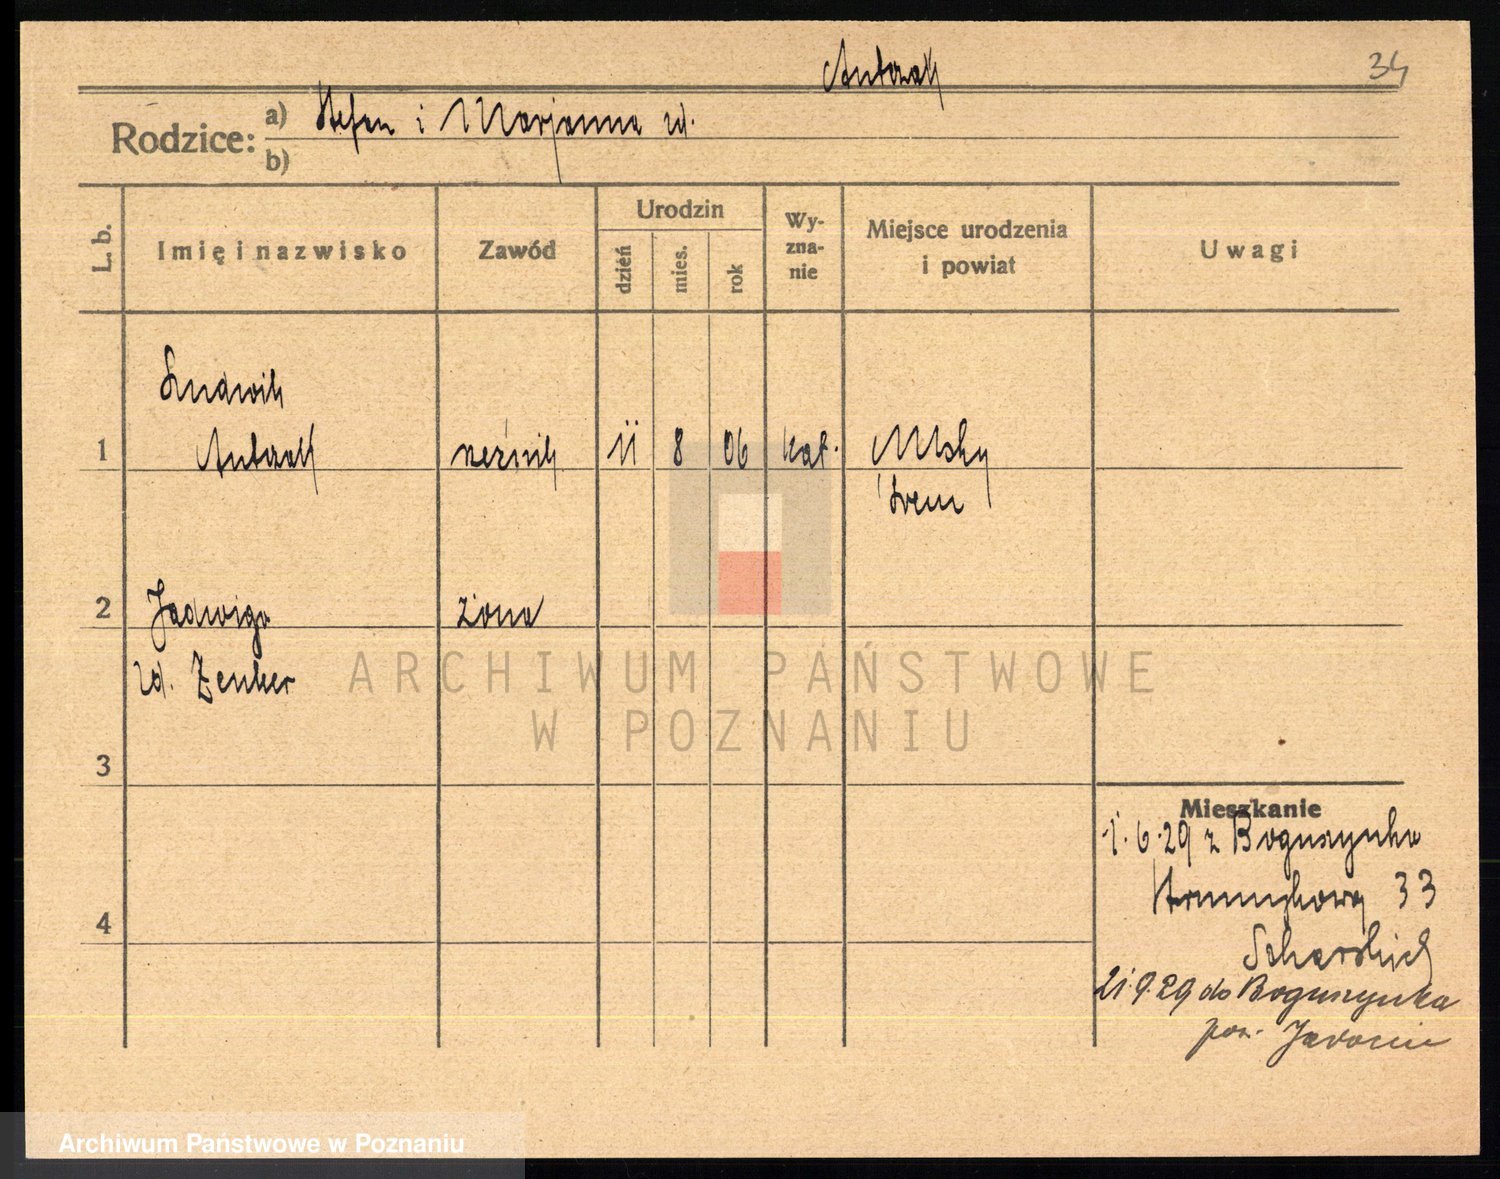 Antczak 34
Rodzice: a) Stefan i Marjanna zd.
b)
L. b. Imię i nazwisko Zawód Urodzin dzień mies. rok Wyznanie Miejsce urodzenia i powiat Uwagi
Ludwik
1 Antczak rzeźnik 11 8 06 kat. Mchy
Śrem
2 Jadwiga żona
zd. Zenker
ARCHIWUM PAŃSTWOWE
W POZNANIU
3
Mieszkanie
1.6.29 z Boguszynka
33
4
21.9.29 do Boguszynka
pow. Jarocin
Archiwum Państwowe w Poznaniu